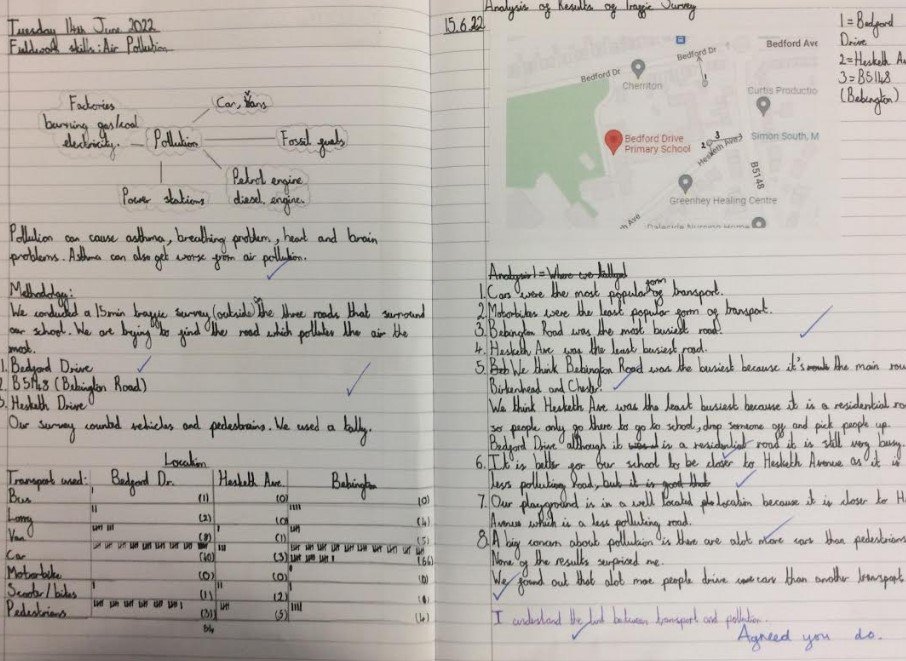 Tuesday 14th June 2022
Fieldwork skills: Air Pollution
Factories
burning gas/coal
electricity.
Car, vans
Pollution
Fossil fuels
Power stations
Petrol engine
diesel, engine.
Pollution can cause asthma, breathing problem, heart and brain
problems. Asthma can also get worse from air pollution.
Methodology:
We conducted a 15min traffic survey (outside) the three roads that surround
our school. We are trying to find the road which pollutes the air the
most.
1. Bedford Drive
2. B5148 (Bebington Road)
3. Hesketh Drive
Our survey counted vehicles and pedestrains. We used a tally.
Location
Transport used: Bedford Dr. Hesketh Ave. Bebington
Bus (1) (0) (0)
Lorry (2) (0)
Van (8) (1) (5)
Car (3)
Motorbike (0) (0)
Scooter/bikes (1) (2)
Pedestrians (31) (5)
15.6.22 Analysis of Results of Traffic Survey
1 = Bedford
Drive
2 = Hesketh A
3 = B5148
(Bebington)
Bedford Ave
Bedford Dr
Bedford Dr
Cherriton
1
Curtis Productio
Bedford Drive
Primary School
3
2
Simon South, M
Hesketh Ave
B5148
Greenhey Healing Centre
Ave
Daleside Nursing Home
Analysis 1 = Where we tallyed
1. Cars were the most popular form of transport.
2. Motorbikes were the least popular form of transport.
3. Bebington Road was the most busiest road.
4. Hesketh Ave was the least busiest road.
5. We think Bebington Road was the busiest because it's the main rou
Birkenhead and Chester.
We think Hesketh Ave was the least busiest because it is a residential ro
so people only go there to go to school, drop someone off and pick people up.
Bedford Drive although it is a residential road it is still very busy.
6. It is better for our school to be closer to Hesketh Avenue as it is
less polluting road, but it is good that
7. Our playground is in a well located location because it is closer to H
Avenue which is a less polluting road.
8. A big concern about pollution is there are alot more cars than pedestrian
None of the results surprised me.
We found out that alot more people drive cars than another transport
I understand the link between transport and pollution.
Agreed you do.